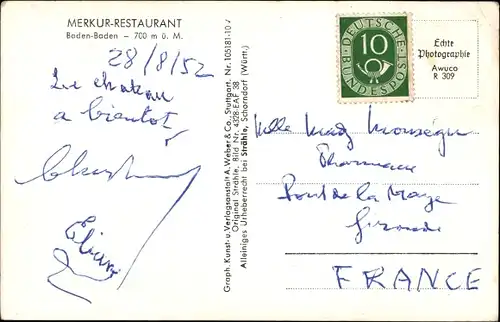 MERKUR-RESTAURANT
Baden-Baden — 700 m ü. M.
28/8/52
a bientot
Eliane
Graph. Kunst- u. Verlagsanstalt A. Weber & Co., Stuttgart. Nr. 105181-10
Original Strähle, Bild Nr. 4328-EAF 38
Alleiniges Urheberrecht bei Strähle, Schorndorf (Württ.)
DEUTSCHE BUNDESPOST
10
Echte
Photographie
Awuco
R 309
Pharmacie
Pont de la Maye
Gironde
FRANCE